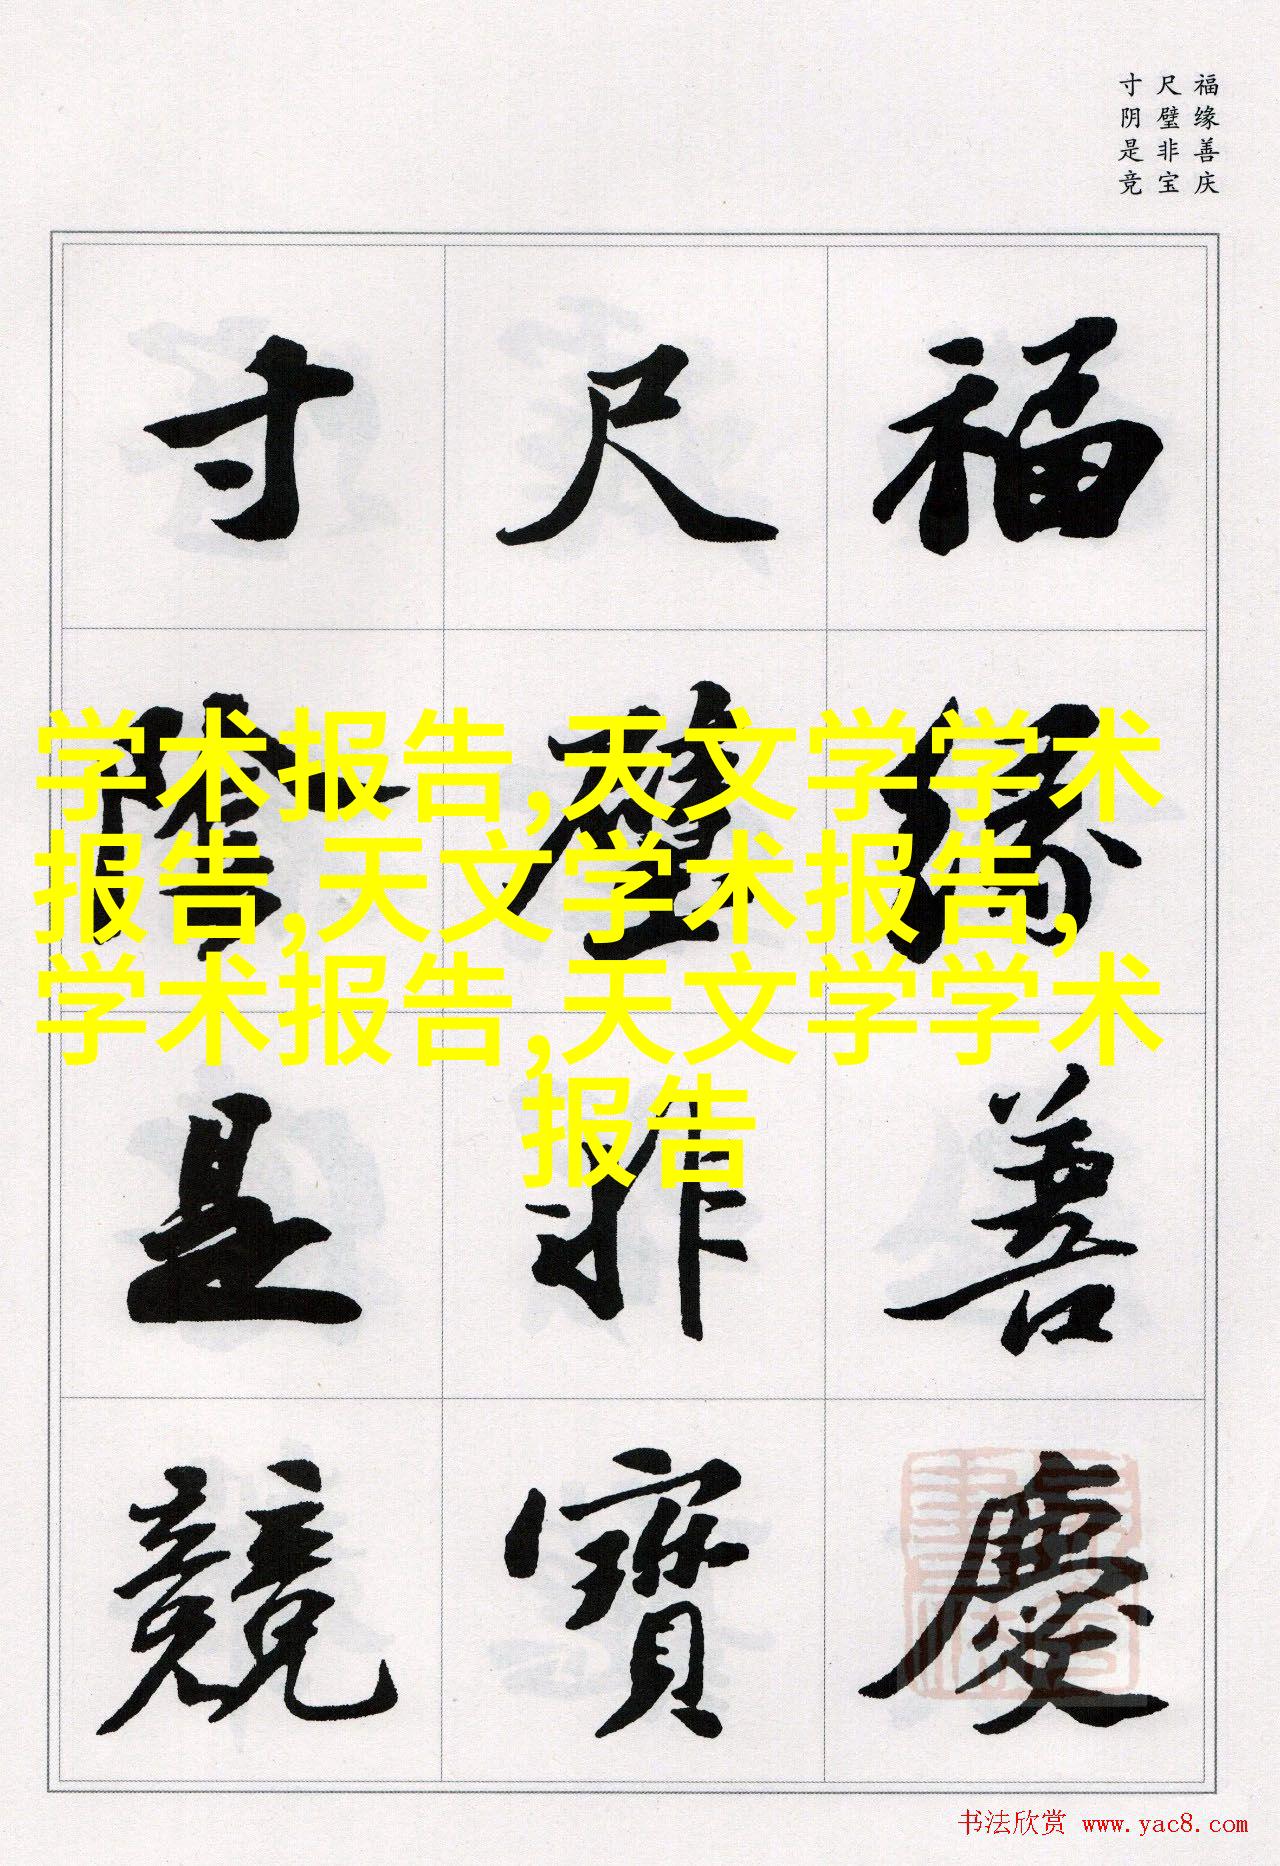 福缘善庆
尺璧非宝
寸阴是竞
福緣善慶
尺璧非寶
寸陰是競
学术报告,天文学学术
报告,天文学术报告,
学术报告,天文学学术
报告
书法欣赏 www.yac8.com